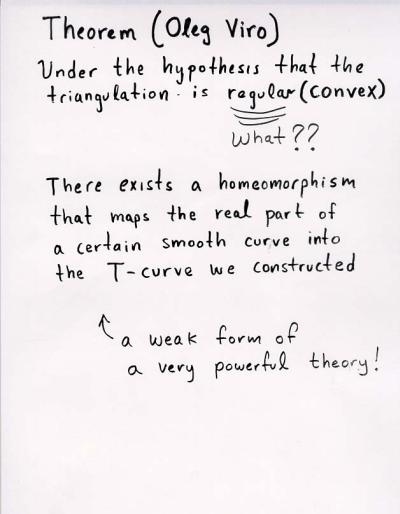 Theorem (Oleg Viro)
Under the hypothesis that the
triangulation is regular (convex)
What??
There exists a homeomorphism
that maps the real part of
a certain smooth curve into
the T-curve we constructed
a weak form of
a very powerful theory!